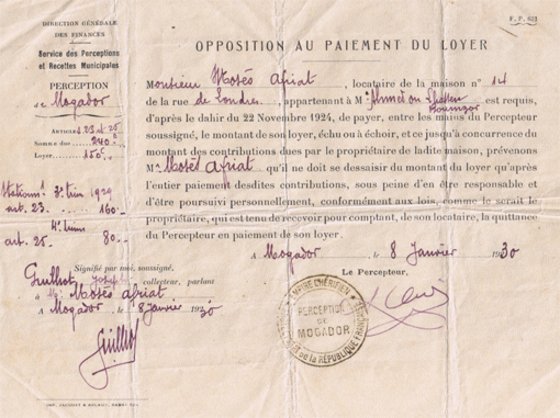 DIRECTION GÉNÉRALE
DES FINANCES
Service des Perceptions
et Recettes Municipales
PERCEPTION
de Mogador
ARTICLES 23 et 25
Somme due 240
Loyer 150
3e trim 1929
art. 23 160
4e
art. 25 80
F. P. 631
OPPOSITION AU PAIEMENT DU LOYER
Monsieur Mosés Afriat, locataire de la maison n° 14
de la rue de Londres, appartenant à M. Ahmed ou est requis,
d'après le dahir du 22 Novembre 1924, de payer, entre les mains du Percepteur
soussigné, le montant de son loyer, échu ou à échoir, et ce jusqu'à concurrence du
montant des contributions dues par le propriétaire de ladite maison, prévenons
M. Mosés Afriat qu'il ne doit se dessaisir du montant du loyer qu'après
l'entier paiement desdites contributions, sous peine d'en être responsable et
d'être poursuivi personnellement, conformément aux lois, comme le serait le
propriétaire, qui est tenu de recevoir pour comptant, de son locataire, la quittance
du Percepteur en paiement de son loyer.
A Mogador, le 8 Janvier 1930
Le Percepteur,
Signifié par moi, soussigné,
Guilhot Joseph collecteur, parlant
à Mr Mosés Afriat
A Mogador, le 8 Janvier 1930
Guilhot
EMPIRE CHÉRIFIEN
PERCEPTION
DE
MOGADOR
de la RÉPUBLIQUE FRANÇAISE